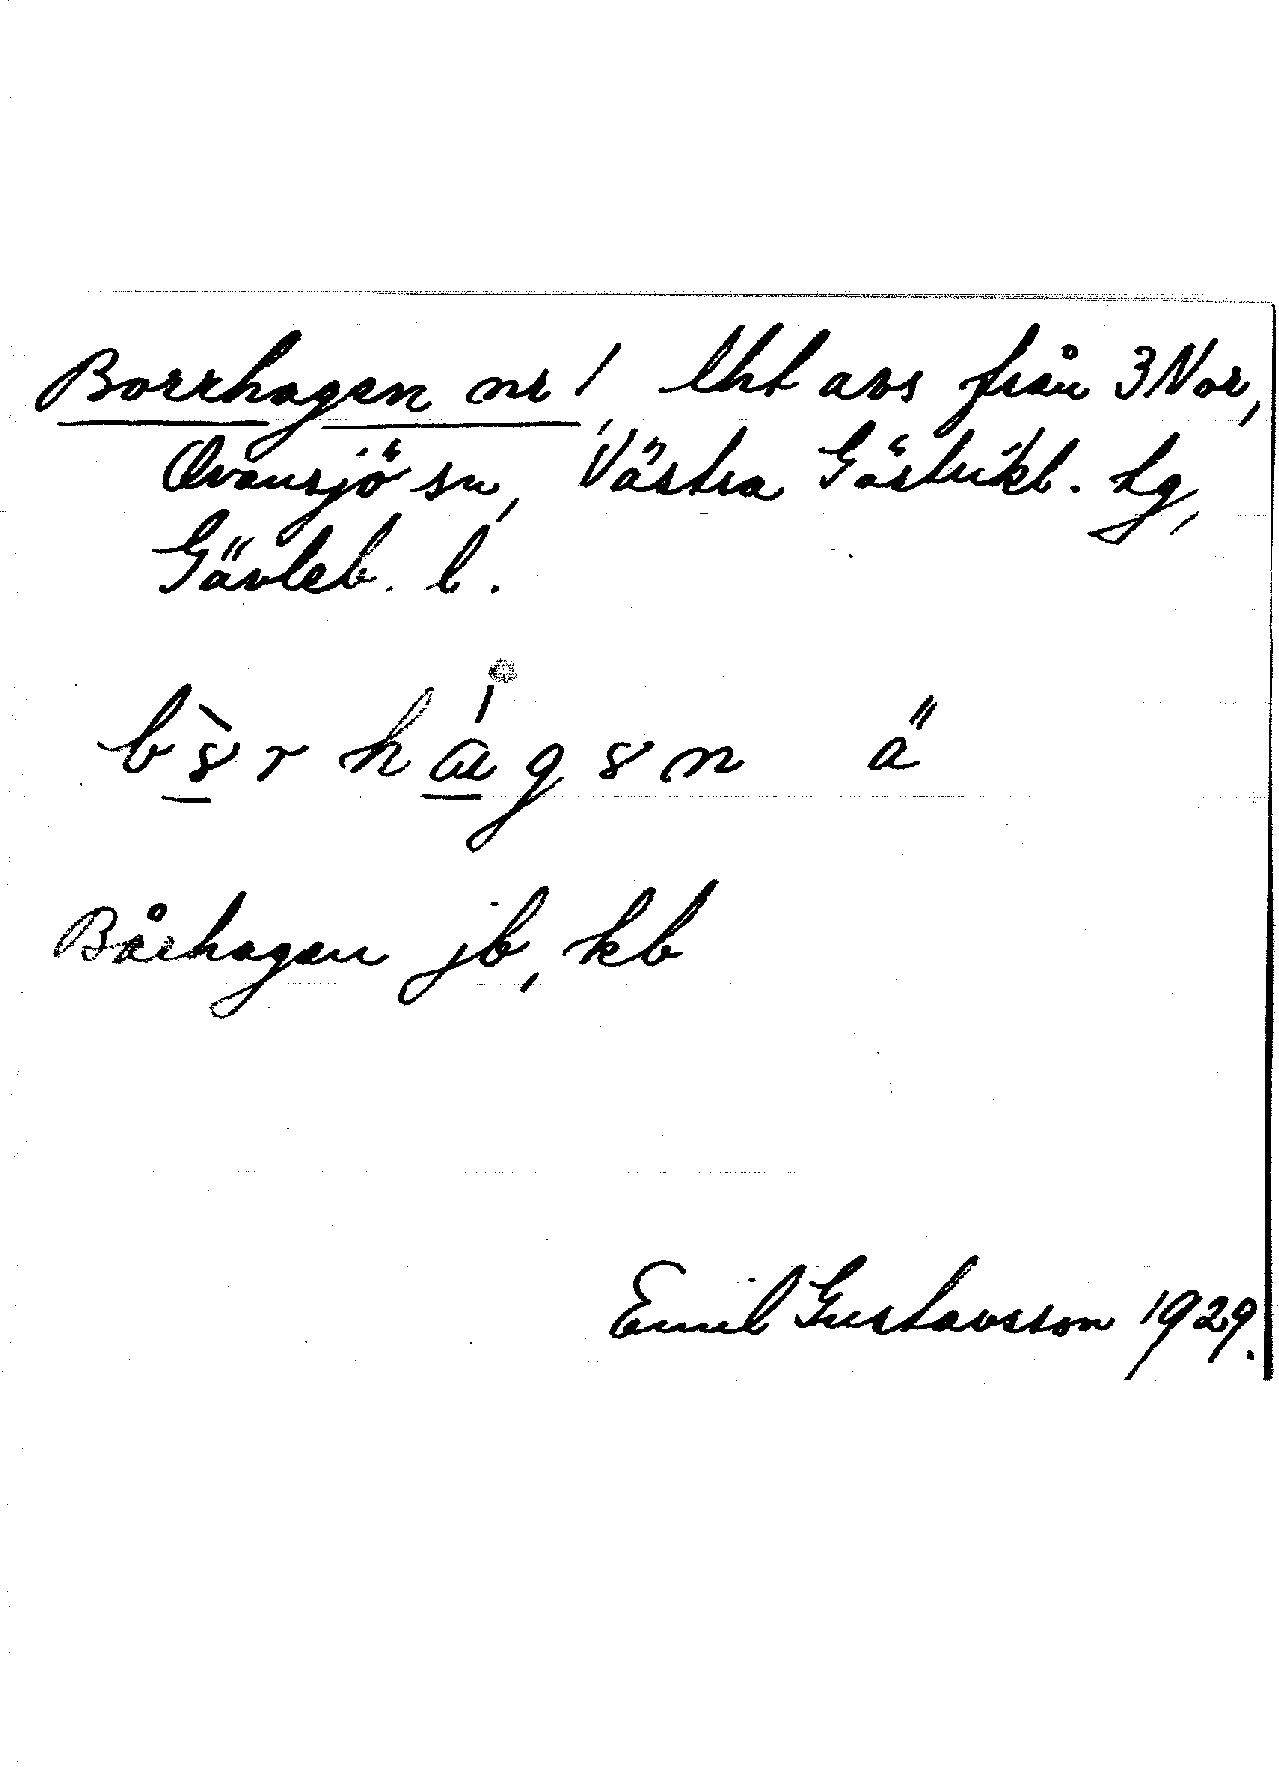 Borrhagen nr 1, lht avs från 3 Nor,
Ovansjö sn, Västra Gästrikl. tg,
Gävleb. l.
ä
Bårhagen jb, kb
Emil Gustavsson 1929.